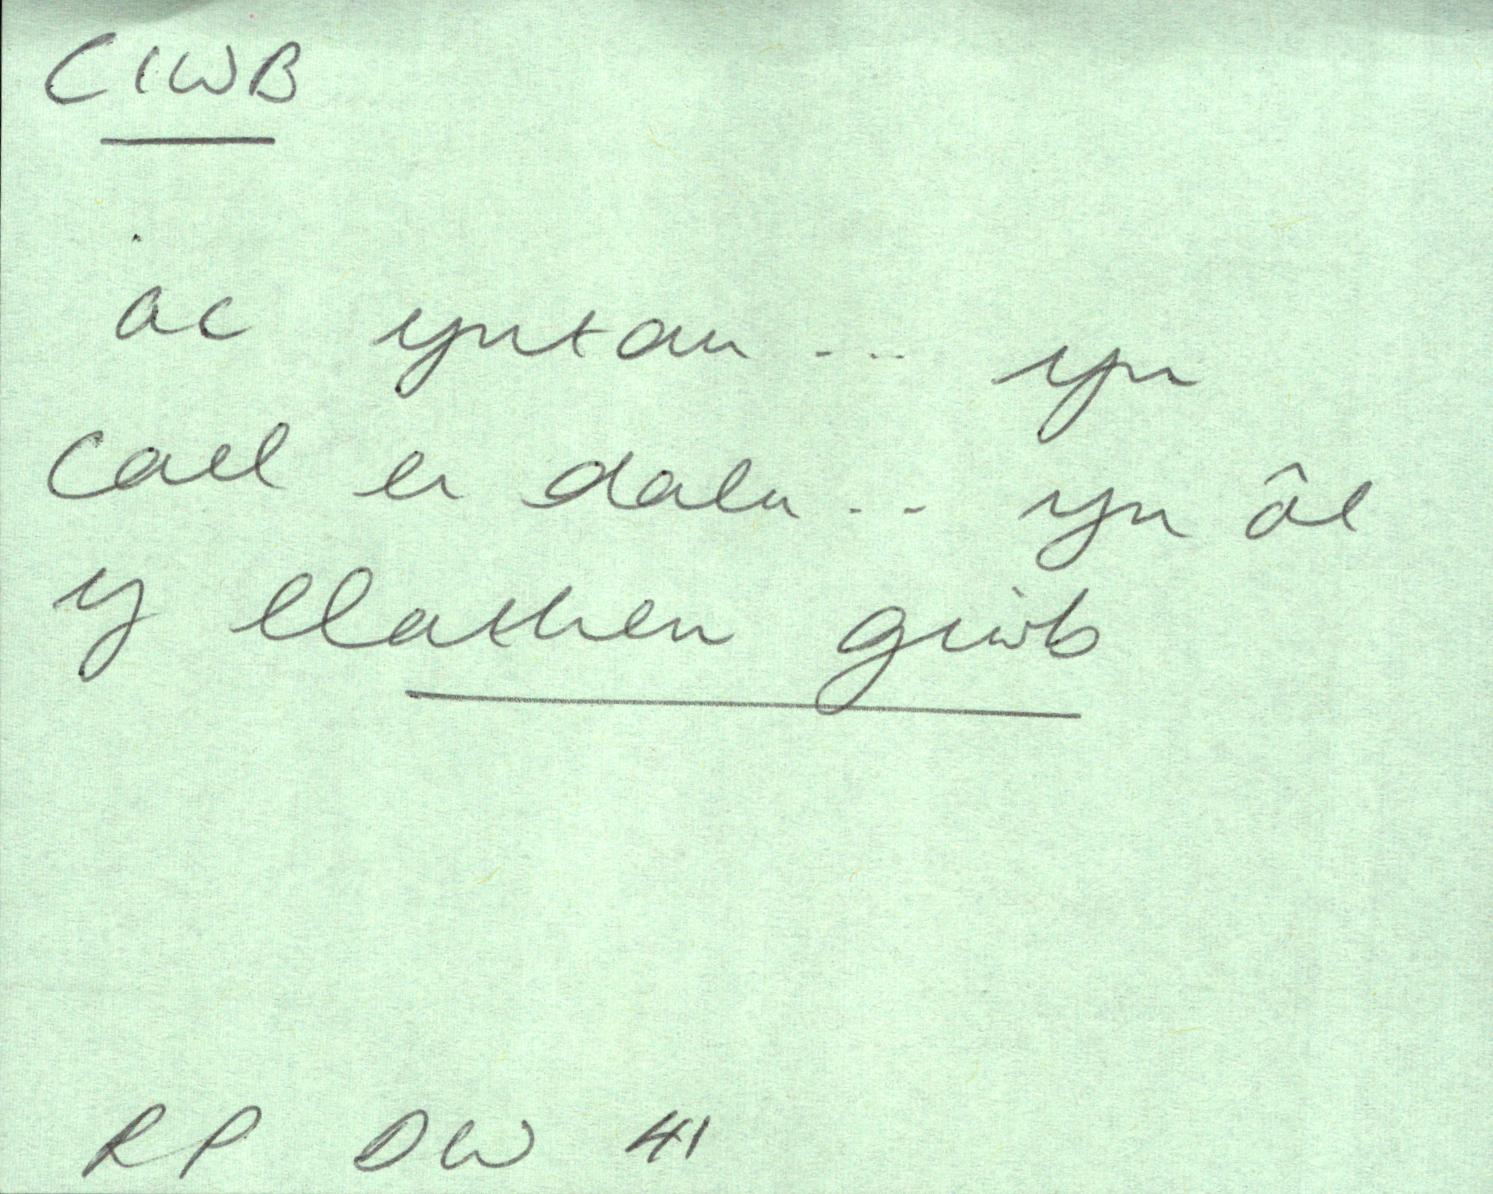 CIWB
ac yntau ... yn
cael ei dalu ... yn ôl
y llathen giwb
RP DW 41